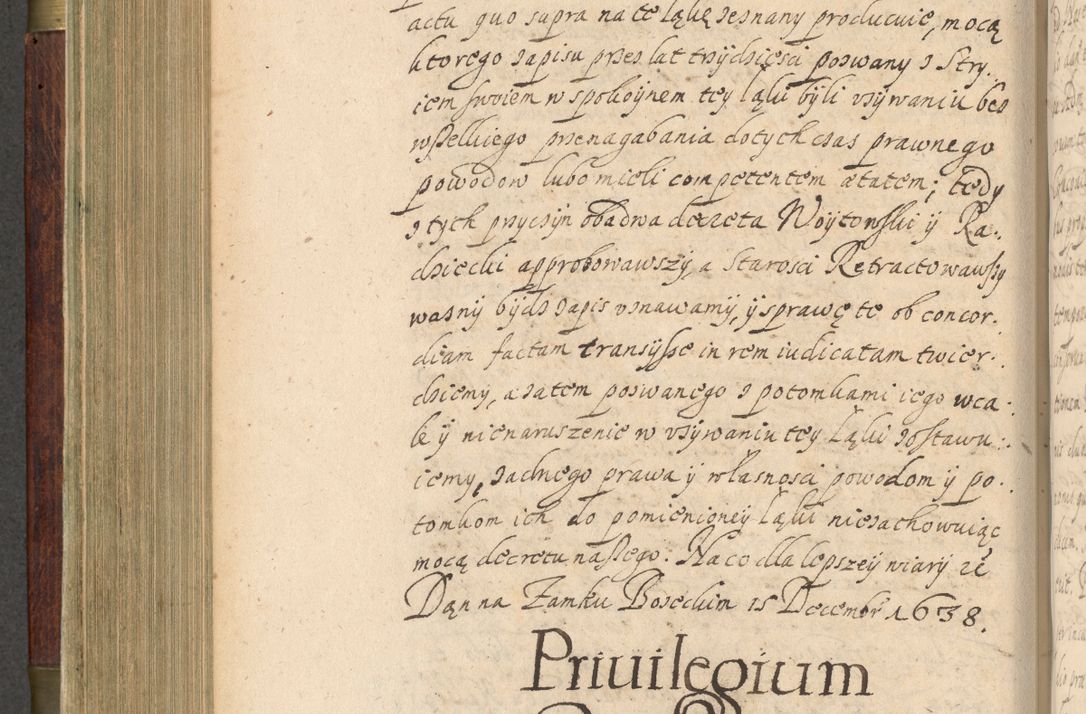 actu quo supra na te ląkę zeznany producuie, mocą
ktorego zapisu przez lat trzydziesci pozwany z Stry.
iem swoiem w spokoynem tey ląki byli vzywaniu bez
wszelkiego przenagabania dotychczas prawnego
powodow lubo mieli competentem ætatem; tedy
z tych przyczyn obadwa decreta Woytowski ÿ Ra:
dziecki approbowawszÿ a Starosci Retractowawszÿ
waznÿ bÿdz zapis vznawamÿ, ÿ sprawę te ob concor.
diam factam transÿsse in rem iudicatam twier.
dziemy, a zatem pozwanego z potomkami iego wca:
le ÿ nienaruszenie w vzÿwaniu tey Ląki zostawu:
iemy, zadnego prawa ÿ wlasnosci powodom ÿ po:
tomkom ich do pomienioneÿ ląki niezachowuiąc
mocą decretu naszego. Na co dla lepszeÿ wiarÿ &c
Dąn na Zamku Bozeckim 15 Decembr 1638.
Priuilegium